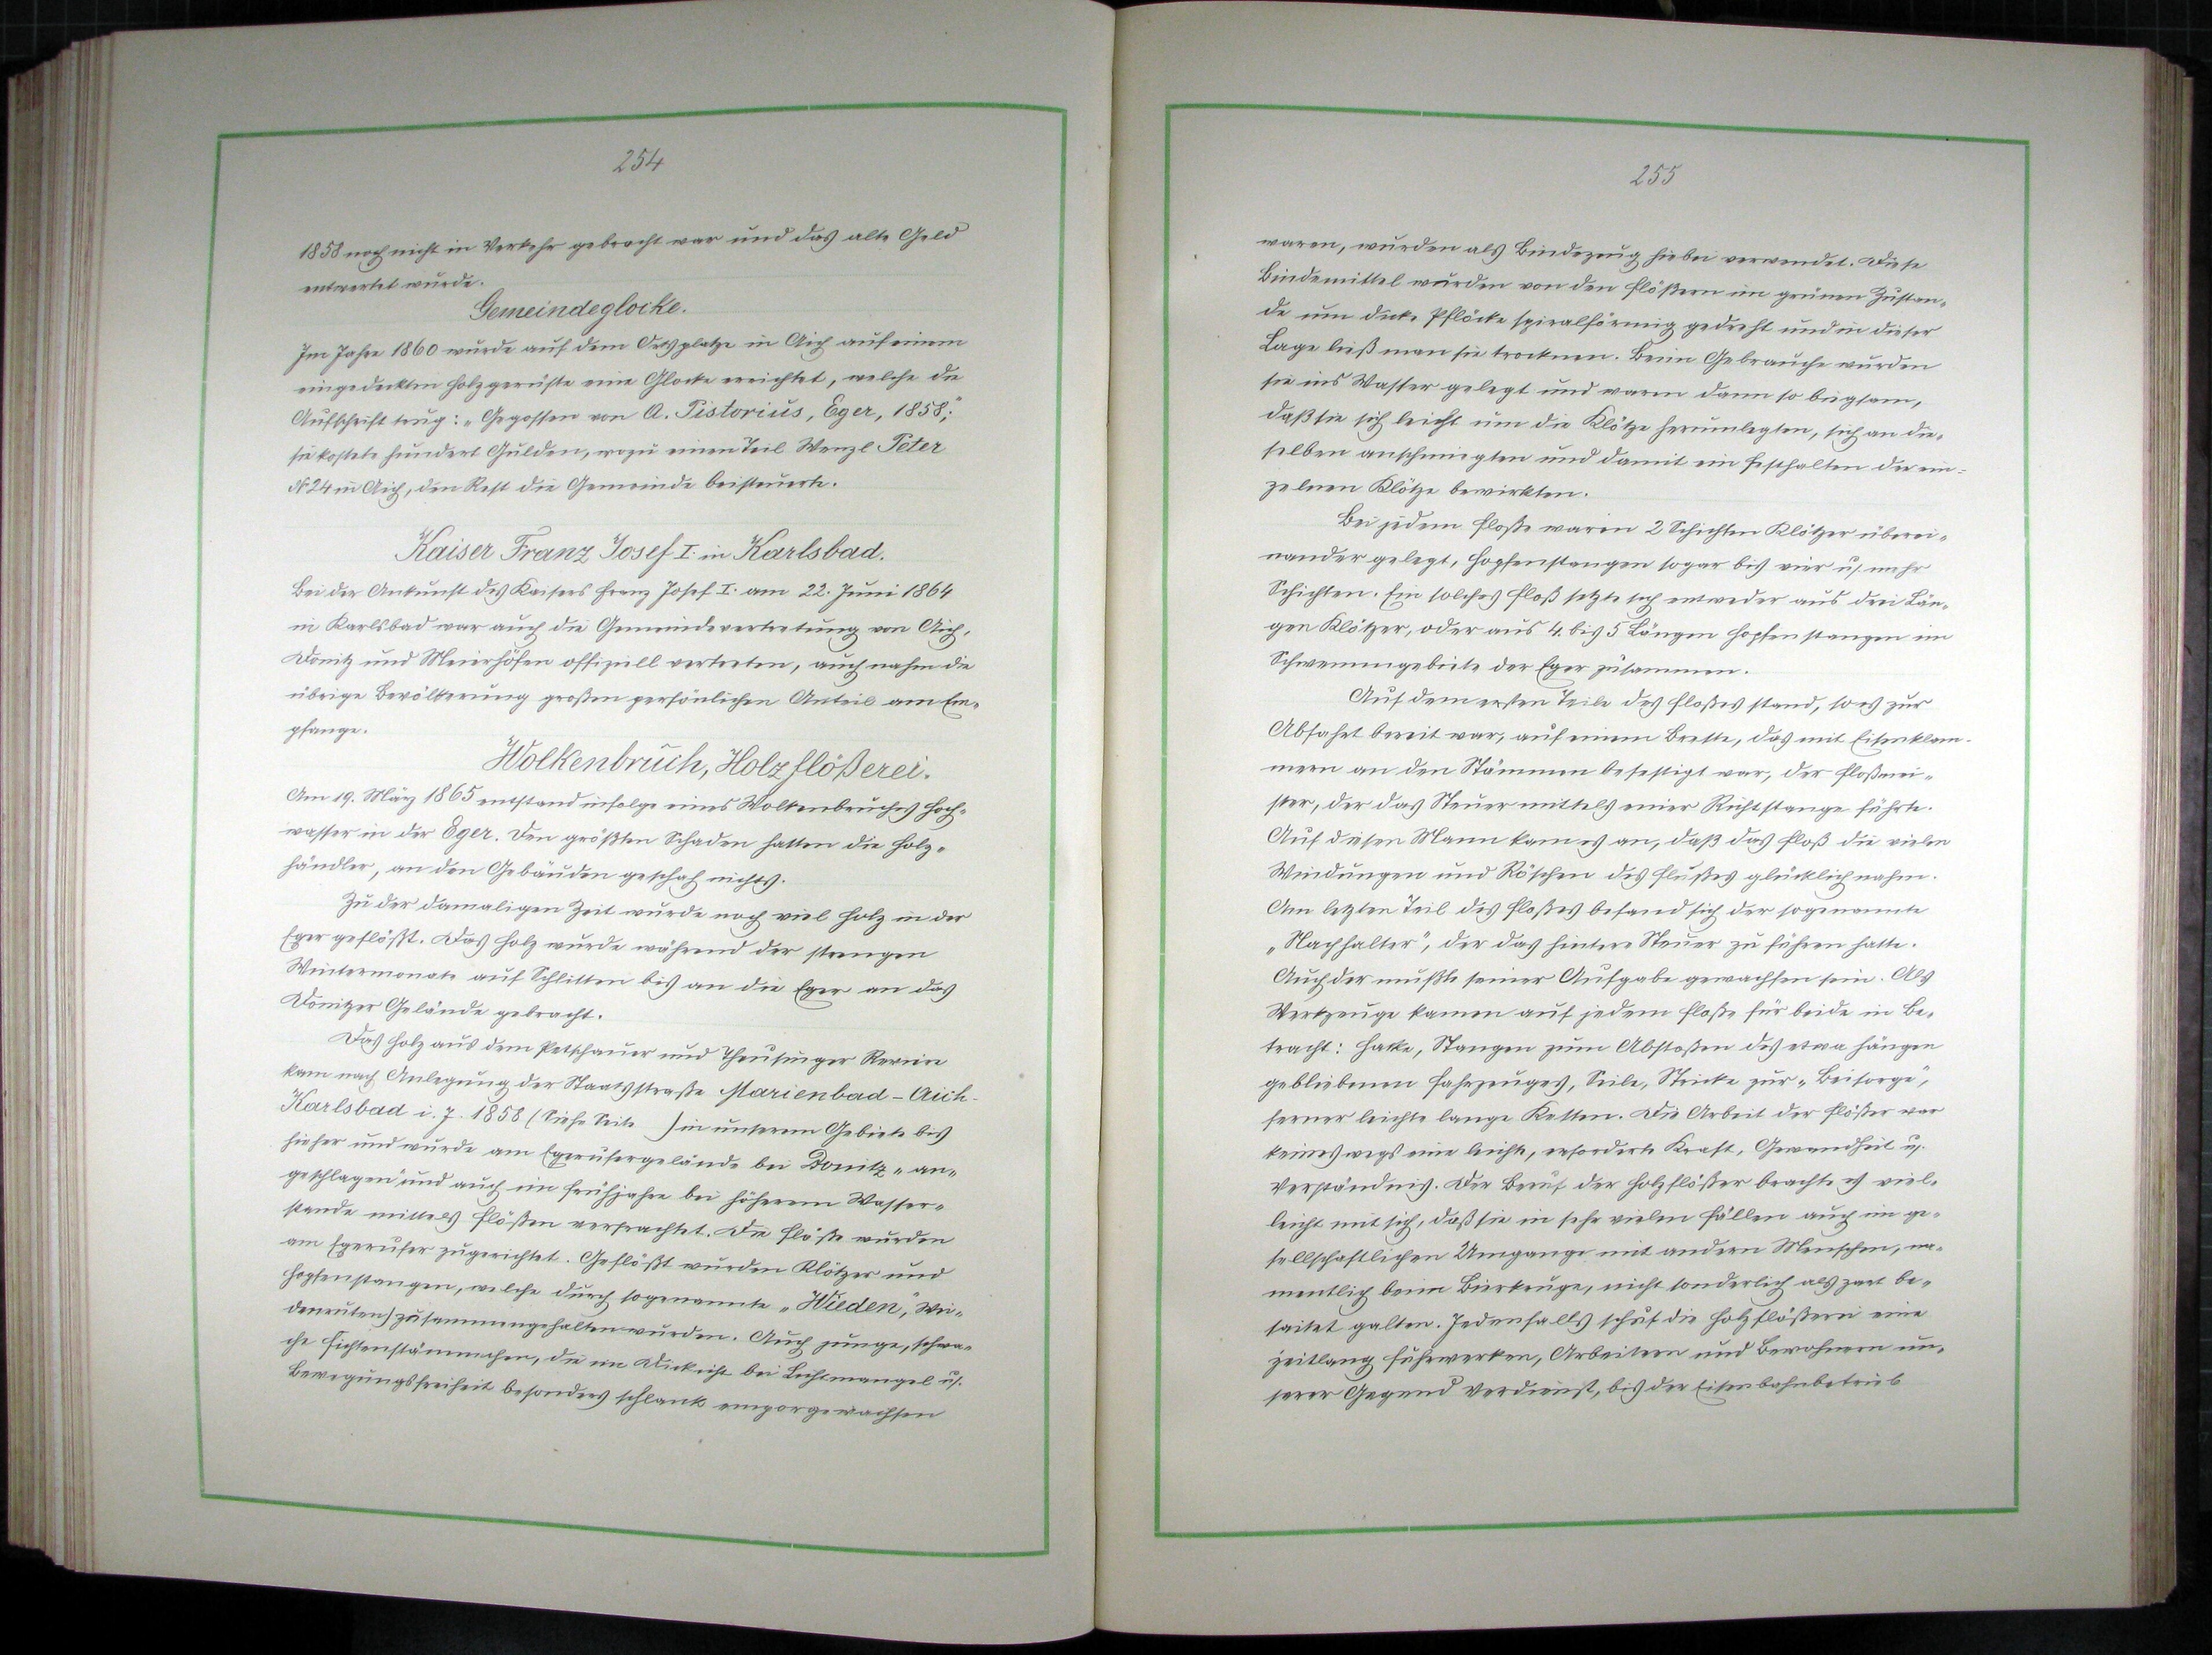 254
1858 noch nicht in Verkehr gebracht war und das alte Geld
entwertet wurde.
Gemeindeglocke.
Im Jahre 1860 wurde auf dem Ortsplatze in Aich auf einem
eingedeckten Holzgerüste eine Glocke errichtet, welche die
Aufschrift trug: „Gegossen von A. Pistorius, Eger, 1858;"
sie kostete hundert Gulden, wozu einen Teil Wenzl Peter
N° 24 in Aich, den Rest die Gemeinde beisteuerte.
Kaiser Franz Josef I. in Karlsbad.
Bei der Ankunft des Kaisers Franz Josef I. am 22. Juni 1864
in Karlsbad war auch die Gemeindevertretung von Aich,
Donitz und Meierhöfen offiziell vertreten, auch nahm die
übrige Bevölkerung großen persönlichen Anteil am Em„
pfange.
Wolkenbruch, Holzflößerei.
Am 19. März 1865 entstand infolge eines Wolkenbruches Hoch„
wasser in der Eger. Den größten Schaden hatten die Holz„
händler, an den Gebäuden geschah nichts.
Zu der damaligen Zeit wurde noch viel Holz in der
Eger geflößt. Das Holz wurde während der strengen
Wintermonate auf Schlitten bis an die Eger an das
Donitzer Gelände gebracht.
Das Holz aus dem Petschauer und Theusinger Reviere
kam nach Anlegung der Staatsstraße Marienbad-Aich-
Karlsbad i. J. 1858 (Siehe Seite ) in unserem Gebiete bis
hieher und wurde am Egerufergelände bei Donitz „an„
geschlagen" und auch im Frühjahre bei höherem Wasser„
stande mittels Flößen verfrachtet. Die Flöße wurden
am Egerufer zugerichtet. Geflößt wurden Klötzer und
Hopfenstangen, welche durch sogenannte „Wieden", Wei„
denruten) zusammengehalten wurden. Auch junge, schwa„
che Fichtenstämmchen, die im Dickicht bei Lichtmangel u.
Bewegungsfreiheit besonders schlank emporgewachsen
255
waren, wurden als Bindezeug hiebei verwendet. Diese
Bindemittel wurden von den Flößern im grünen Zustan„
de um dicke Pflöcke spiralförmig gedreht und in dieser
Lage ließ man sie trocknen. Beim Gebrauche wurden
sie ins Wasser gelegt und waren dann so biegsam,
daß sie sich leicht um die Klötze herumlegten, sich an die„
selben anschmiegten und damit ein Festhalten der ein„
zelnen Klötze bewirkten.
Bei jedem Floße waren 2 Schichten Klötzer überei„
nander gelegt, Hopfenstangen sogar bis vier u. mehr
Schichten. Ein solches Floß setzte sich entweder aus drei Län„
gen Klötzer, oder aus 4 bis 5 Längen Hopfenstangen im
Schwemmgebiete der Eger zusammen.
Auf dem ersten Teile des Floßes stand, so es zur
Abfahrt bereit war, auf einem Brette, das mit Eisenklam-
mern an den Stämmen befestigt war, der Floßmei„
ster, der das Steuer mittels einer Richtstange führte.
Auf diesen Mann kam es an, daß das Floß die vielen
Windungen und Röschen des Flußes glücklich nahm.
Am letzten Teil des Floßes befand sich der sogenannte
„Nachhalter", der das hintere Steuer zu führen hatte.
Auch der mußte seiner Aufgabe gewachsen sein. Als
Werkzeuge kamen auf jedem Floße für beide in Be„
tracht: Hacke, Stangen zum Abstoßen des etwa hängen
gebliebenen Fahrzeuges, Seile, Stricke zur „Beisorge",
ferner leichte lange Ketten. Die Arbeit der Flößer war
keineswegs eine leichte, erforderte Kraft, Gewandheit u.
Verständnis. Der Beruf der Holzflößer brachte es viel„
leicht mit sich, daß sie in sehr vielen Fällen auch im ge„
sellschaftlichen Umgange mit andern Menschen, na„
mentlich beim Bierkruge, nicht sonderlich als zart be„
saitet galten. Jedenfalls schuf die Holzflößerei eine
zeitlang Fuhrwerken, Arbeitern und Bewohnern un„
serer Gegend Verdienst, bis der Eisenbahnbetrieb